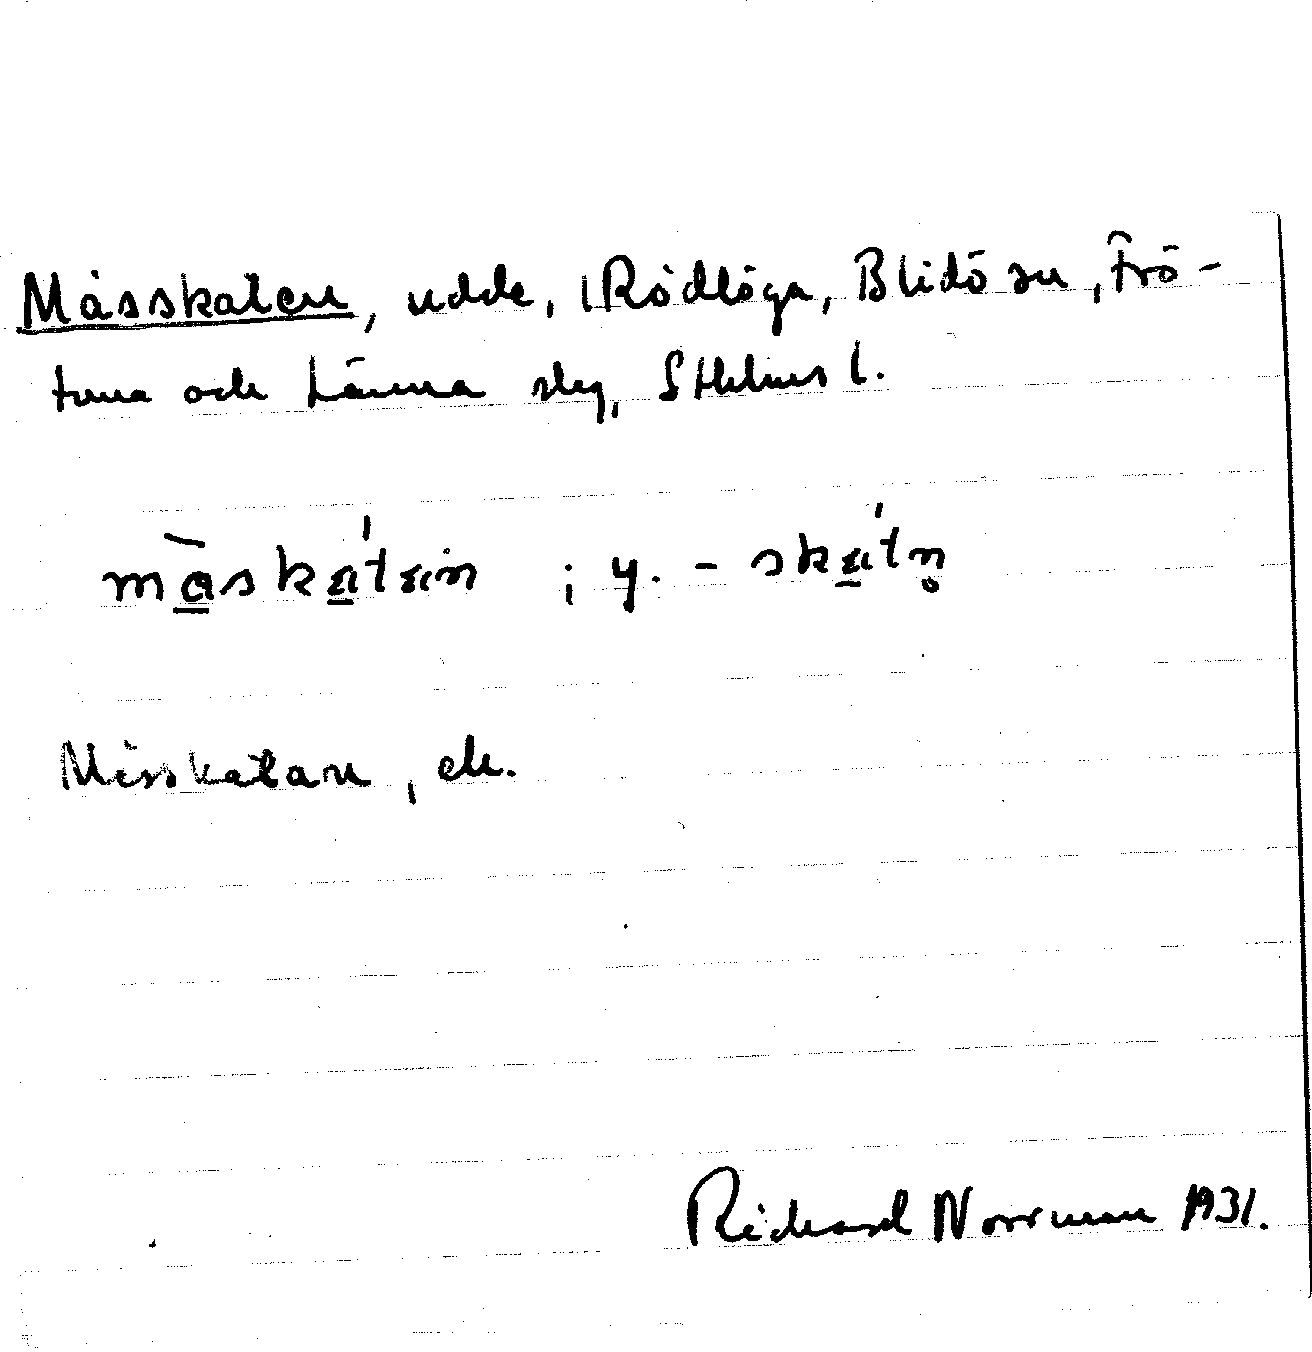 Måsskaten, udde, i Rödlöga, Blidö sn, Frö-
tuna och Länna slg, Sthlms l.
måskátan ; y. - skátn̥
Misskatan, ek.
Richard Norrman 1931.